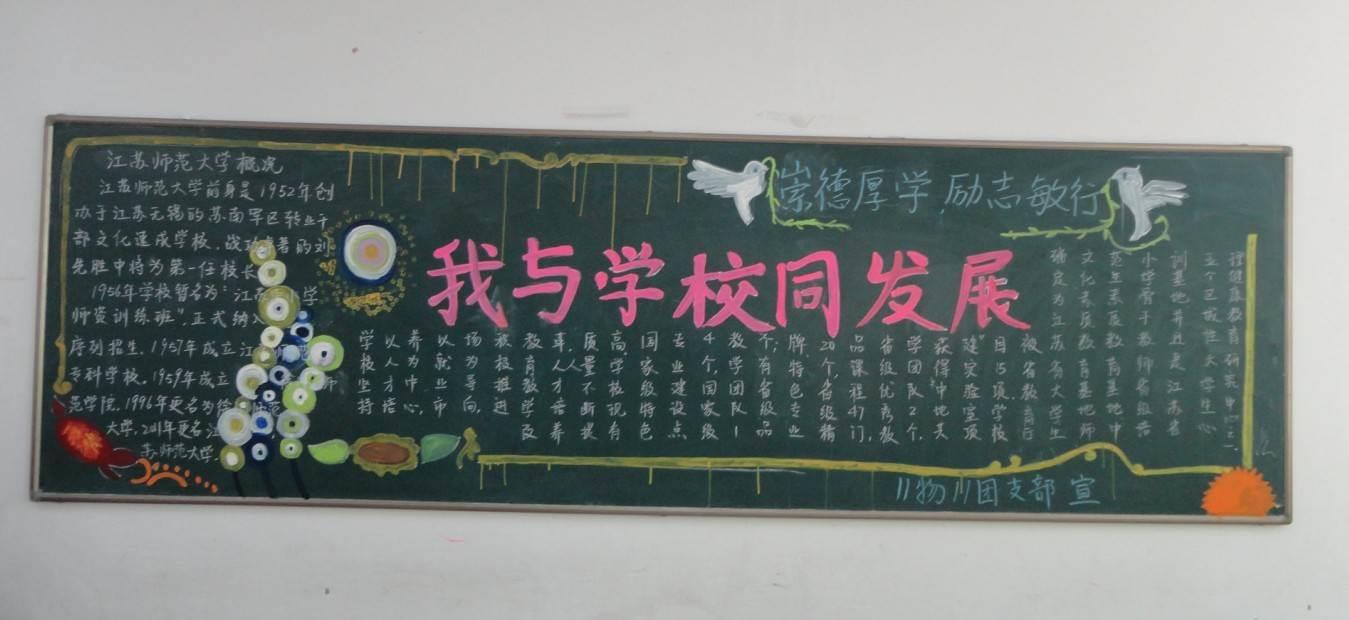 江苏师范大学概况
江苏师范大学前身是1952年创
办于江苏无锡的苏南军区转业干
部文化速成学校,战功卓著的刘
先胜中将为第一任校长
1956年学校暂名为"江苏 小学
师资训练班",正式纳入
序列招生,1957年成立江
专科学校,1959年成立 师
范学院,1996年更名为徐 师范
大学,2011年更名江
苏师范大学.
崇德厚学,励志敏行
我与学校同发展
学校坚持
以人才培
养为中心,
以就业市
场为导向,
积极推进
教育教学改
革,人才培养
质量不断提
高,学校现有
国家级特色
专业建设点
4个,国家级
教学团队1
个;有省级品
牌特色专业
20个,省级精
品课程41门,
省级优秀教
学团队2个,
获得"中地共
建"实验室项
目15项,学校
被省教育厅
确定为江苏省大学生
文化素质教育基地师
范生素质教育基地中
小学骨干教师省级培
训基地并且是江苏省
五个区域性大学生心
理健康教育研究中心之一
11物11团支部 宣